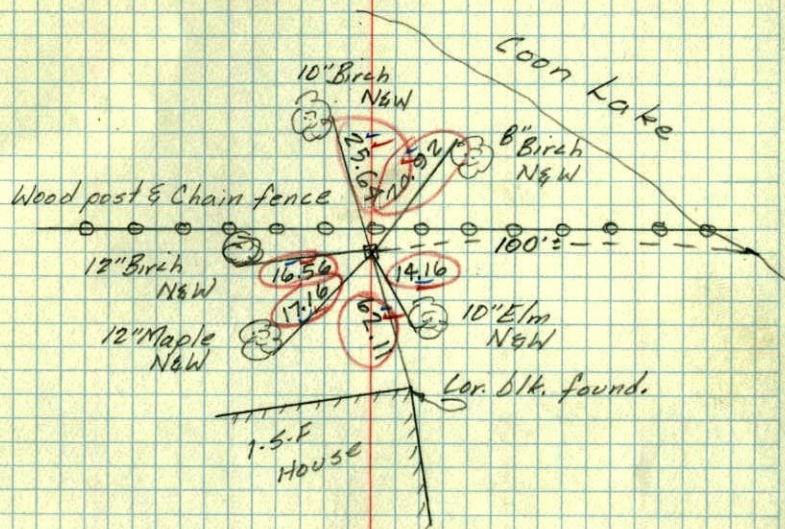 Coon Lake
10" Birch
N&W
8" Birch
N&W
25.64
20.92
Wood post & Chain fence
100'±
12" Birch
N&W
16.56
14.16
17.16
12" Maple
N&W
67.11
10" Elm
N&W
Cor. blk. found.
1-S.F
House